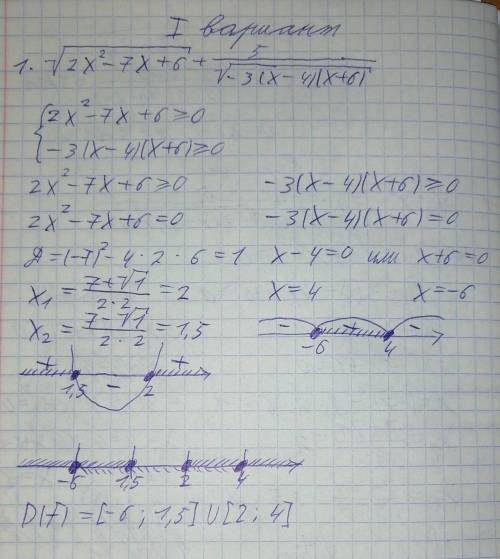 I вариант
1. √(2x²-7x+6) + 5/√(-3(x-4)(x+6))
{2x²-7x+6≥0
{-3(x-4)(x+6)≥0
2x²-7x+6≥0
2x²-7x+6=0
D=(-7)²-4·2·6=1
x₁=(7+√1)/(2·2)=2
x₂=(7-√1)/(2·2)=1,5
+ - +
1,5 2
-3(x-4)(x+6)≥0
-3(x-4)(x+6)=0
x-4=0 или x+6=0
x=4 x=-6
- + -
-6 4
-6 1,5 2 4
D(f)=[-6;1,5]U[2;4]